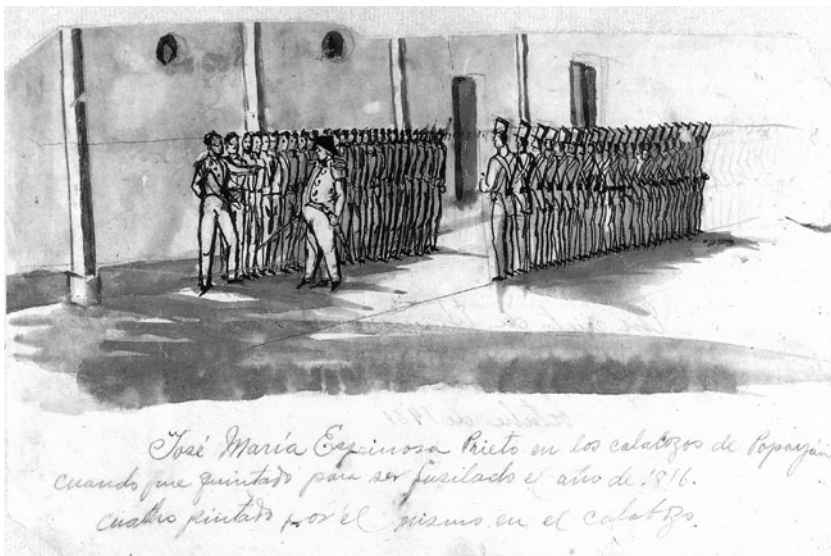 José María Espinosa Prieto en los calabozos de Popayán
cuando fue quintado para ser fusilado el año de 1816.
cuadro pintado por él mismo en el calabozo.